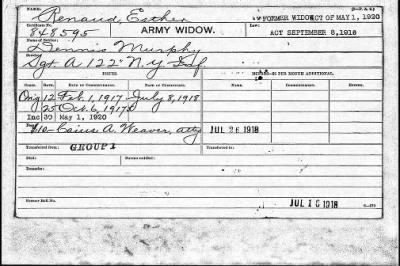 NAME:
Renaud, Esther
FORMER WIDOW ACT OF MAY 1, 1920
Certificate No.
848595
ARMY WIDOW.
Law:
ACT SEPTEMBER 8, 1916
Dennis Murphy
Service:
Sgt A 122" N.Y. Inf
ISSUE.
PER MONTH ADDITIONAL.
Class. Rate. Date of Commencement. Date of Certificate.
Orig 12 Feb. 1, 1917 July 8, 1918
25 Oct. 6, 1917
Inc 30 May 1, 1920
Caius A. Weaver, atty
JUL 26 1918
Transferred from:
GROUP 1
Transferred to:
Died:
Bureau notified:
Remarks:
Former Roll No.
JUL 10 1918